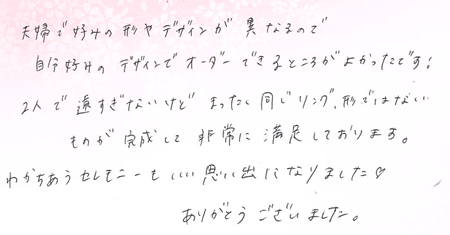 夫婦で好みの形やデザインが異なるので
自分好みのデザインでオーダーできるところがよかったです!
2人で遠すぎないけどまったく同じリング、形ではない
ものが完成して非常に満足しております。
わかちあうセレモニーもいい思い出になりました♡
ありがとうございました。